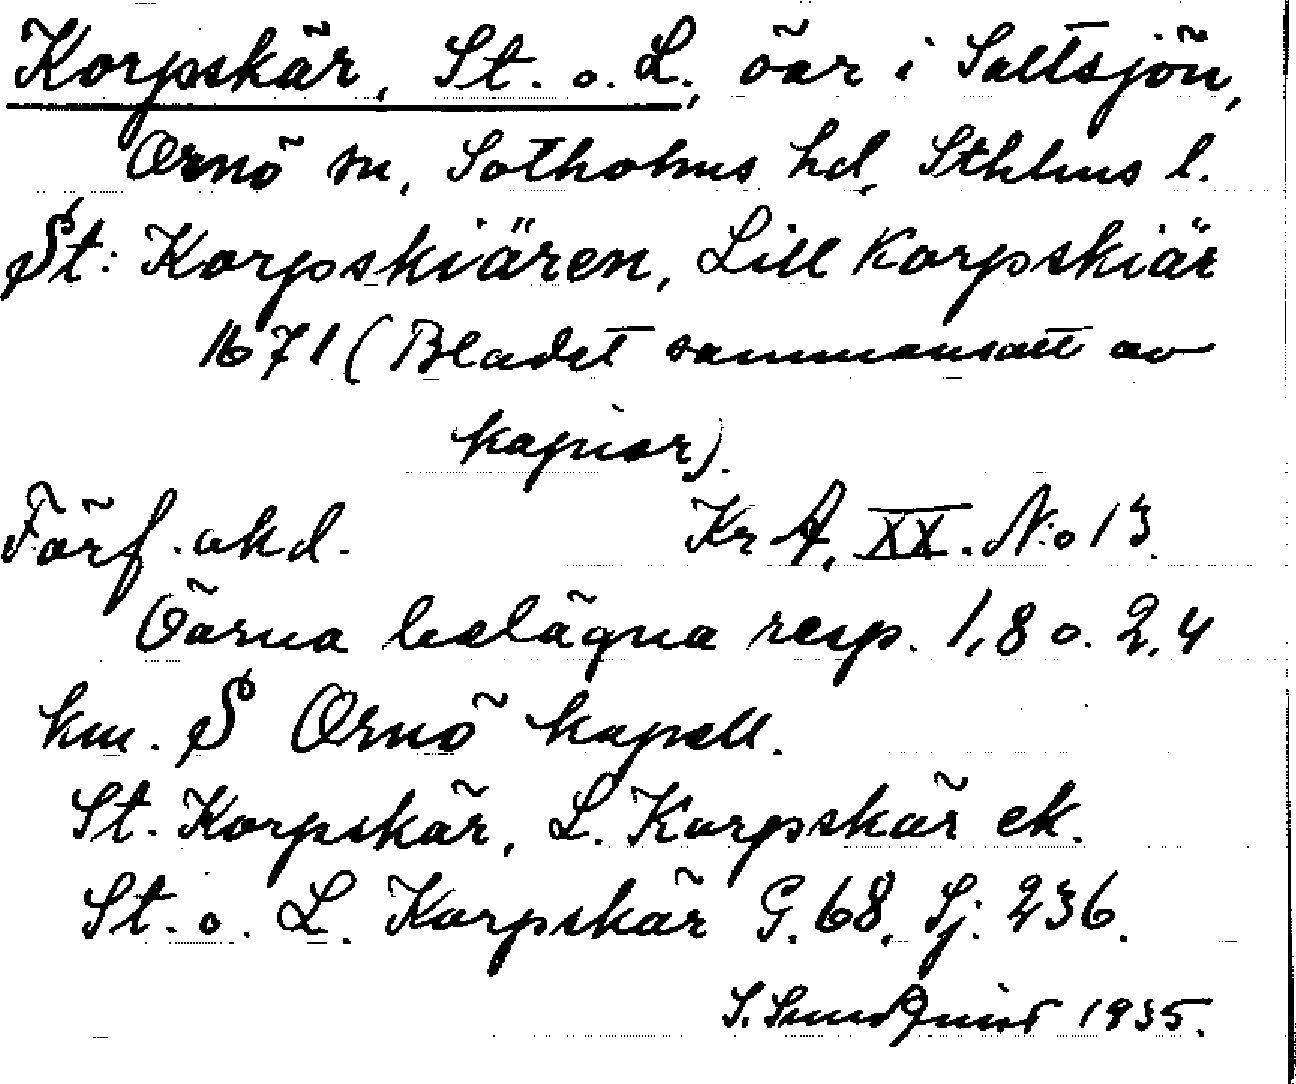 Korpskär, St. o. L., öar i Saltsjön,
Ornö sn, Sotholms hd, Sthlms l.
St: Korpskiären, Lill Korpskiär
1671 (Bladet sammansatt av
kopior).
Förf. okd. Kr A, XX. N:o 13.
Öarna belägna resp. 1,8 o. 2,4
km. S Ornö kapell.
St. Korpskär, L. Korpskär ek.
St. o. L. Korpskär G. 68, Sj: 236.
S. Sundquist 1935.